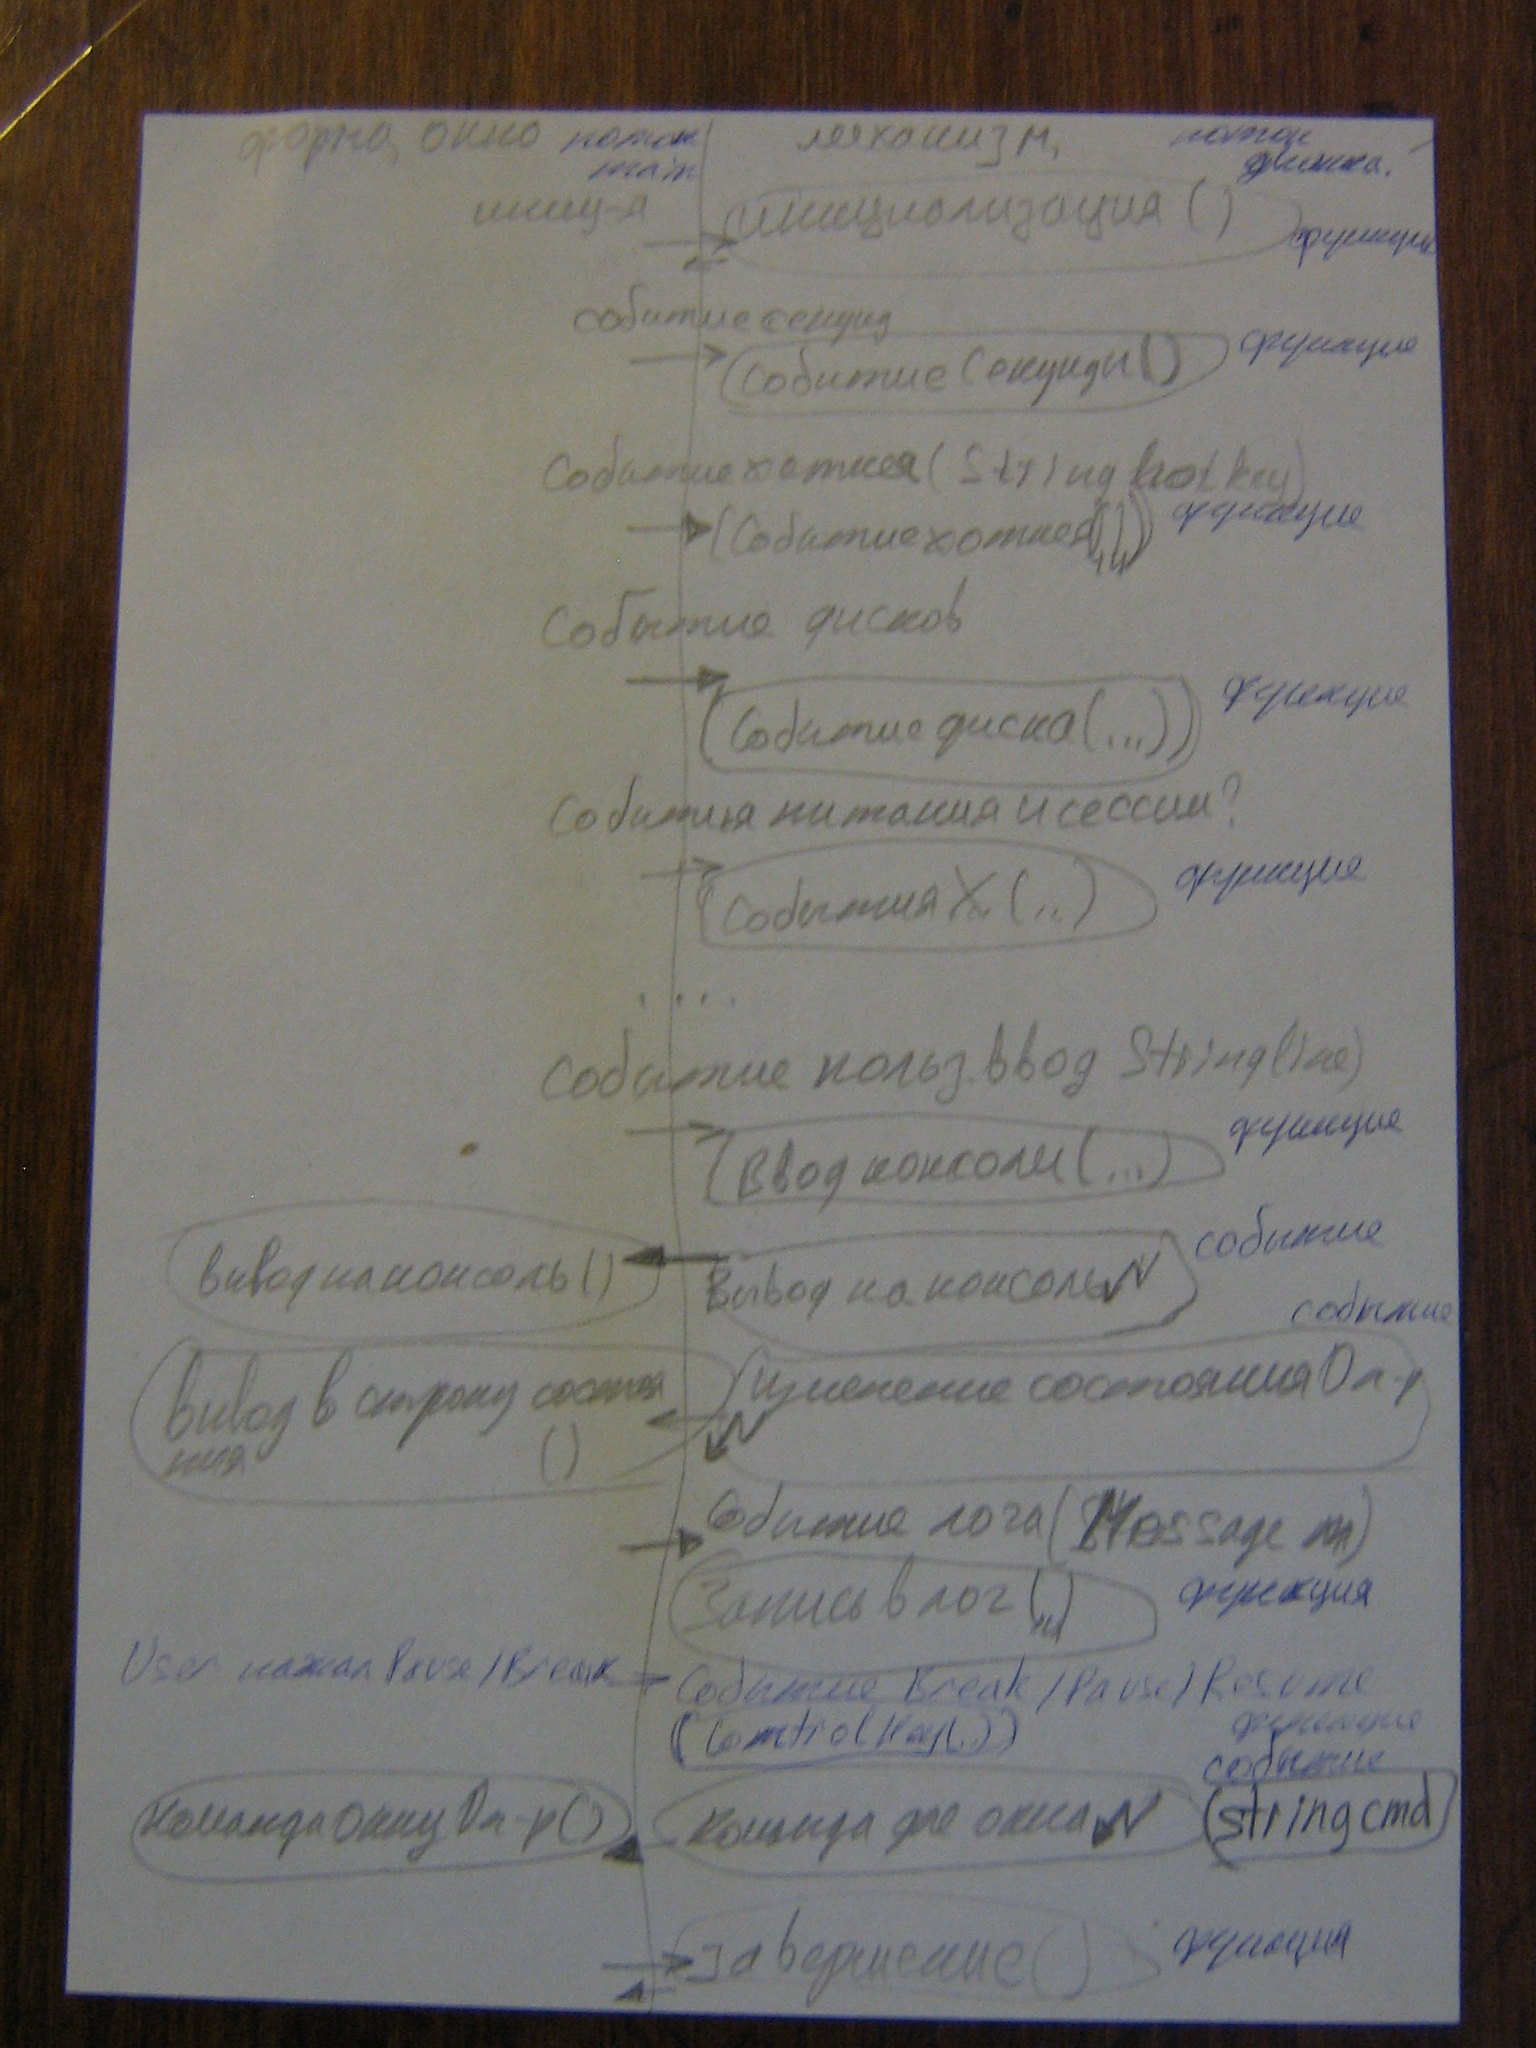 форма, окно поток механизм, поток
main движка.
иниц-я инициализация ()
функция
событие секунд
Событие Секунды () функция
Событие хоткея (String hotkey)
Событие хоткея (,,) функция
Событие дисков
Событие диска (...) функция
События питания и сессии?
События X (..) функция
....
Событие польз. ввод String line)
Ввод консоли (...) функция
Вывод на консоль () Вывод на консоль событие
событие
Вывод в строку состоя Изменение состояния Оп-р
ния ()
Событие лога (Message m)
Запись в лог (,,) функция
User нажал Pause/Break Событие Break/Pause/Resume
(ControlKey(..)) функция
событие
Команда окну Оп-р () Команда для окна (string cmd)
Завершение () функция